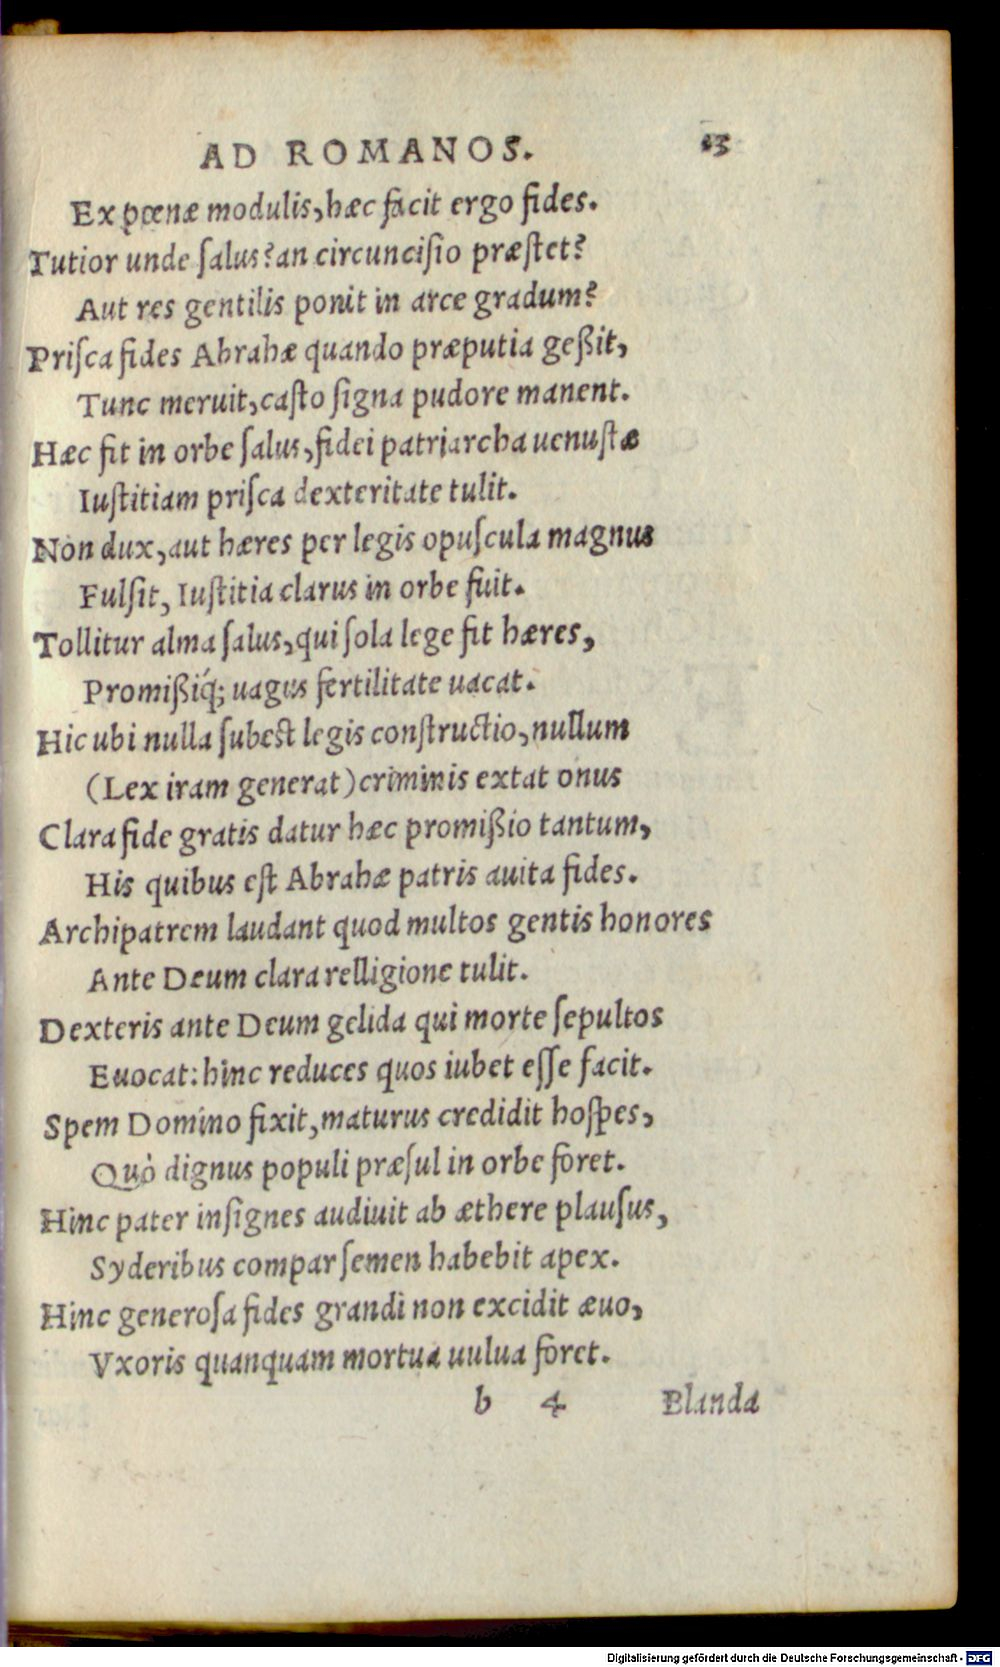 AD ROMANOS. 13
Ex pœnæ modulis, hæc facit ergo fides.
Tutior unde ſalus? an circunciſio præſtet?
Aut res gentilis ponit in arce gradum?
Priſca fides Abrahæ quando præputia geßit,
Tunc meruit, caſto ſigna pudore manent.
Hæc fit in orbe ſalus, fidei patriarcha uenuſtæ
Iuſtitiam priſca dexteritate tulit.
Non dux, aut hæres per legis opuſcula magnus
Fulſit, Iuſtitia clarus in orbe fuit.
Tollitur alma ſalus, qui ſola lege fit hæres,
Promißiq́; uagus fertilitate uacat.
Hic ubi nulla ſubest legis conſtructio, nullum
(Lex iram generat) criminis extat onus
Clara fide gratis datur hæc promißio tantum,
His quibus eſt Abrahæ patris auita fides.
Archipatrem laudant quod multos gentis honores
Ante Deum clara relligione tulit.
Dexteris ante Deum gelida qui morte ſepultos
Euocat: hinc reduces quos iubet eſſe facit.
Spem Domino fixit, maturus credidit hoſpes,
Quò dignus populi præſul in orbe foret.
Hinc pater inſignes audiuit ab æthere plauſus,
Syderibus compar ſemen habebit apex.
Hinc generoſa fides grandi non excidit æuo,
Vxoris quanquam mortua uulua foret.
b 4 Blanda
Digitalisierung gefördert durch die Deutsche Forschungsgemeinschaft - DFG